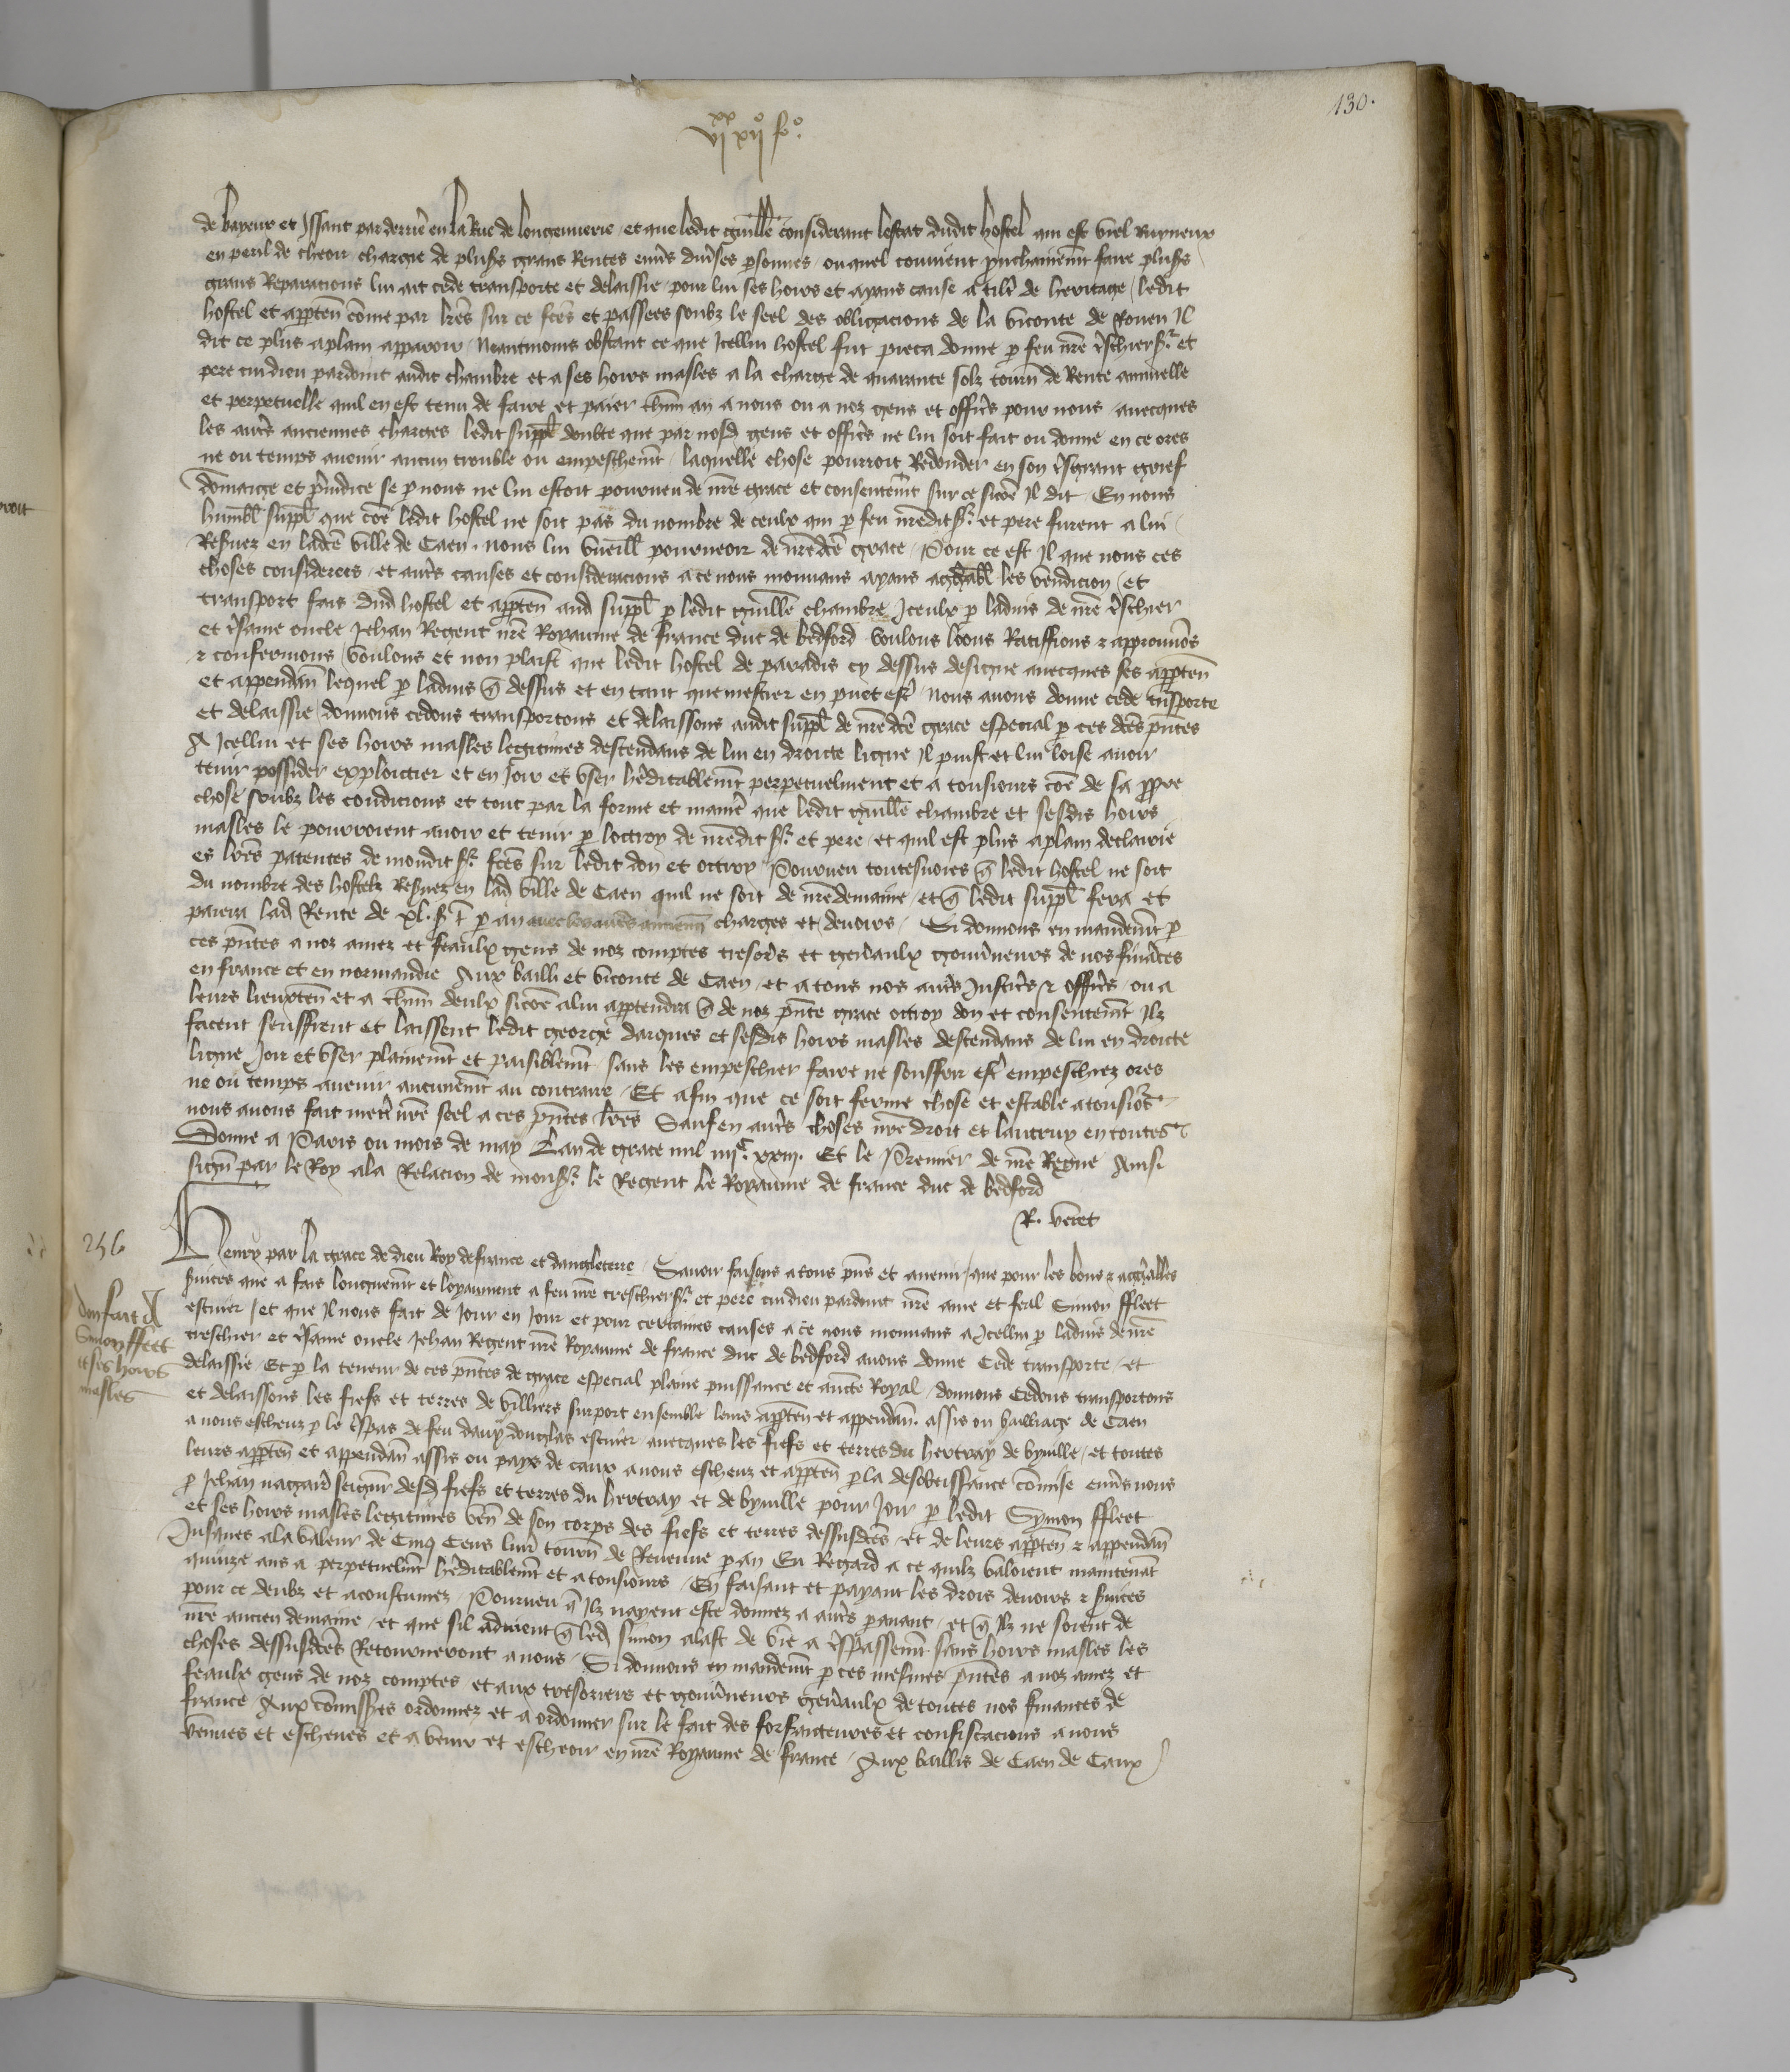 130.
vi xx xii fo.
de bayeux et yssant par derrie en la Rue de longcnuerie et que ledit guille considerant lestat dudit hostel qui est viel Ruyneux
en peril de cheoir charge de plus grans Rentes enus diuses psonnes ouquel conuient faire plus
grans Reparacions lui ait cede transporte et delaissie pour lui ses hoirs et ayans cause a tilt de heritage ledit
hostel et apptn come par lres sur ce fces et passees soubz le seel des obligacions de la viconte de Rouen Il
dit ce plus aplain apparoir Neantmoins obstant ce que Icellui hostel fut pieca donne p feu nre tschier sr et
pere cui dieu pardoint audit chambre et a ses hoirs masles a la charge de quarante solz tourn de Rente annuelle
et perpetuelle quil en est tenu de faire et paier chun an a nous ou a noz gens et offics pour nous auecques
les autes anciennes charges ledit suppl doubte que par nosd gens et offics ne lui soit fait ou donne en ce ores
ne ou temps auenir aucun trouble ou empeschemt laquelle chose pourroit Redonder en son tsgrant grief
domaige et piudice se p nous ne lui estoit pourueu de nre grace et consentemt sur ce sicoe Il dit En nous
humbl suppl que coe ledit hostel ne soit pas du nombre de ceulx qui p feu nredit sr et pere furent a lui
Resuez en ladce ville de Caen nous lui vueill pourueoir de nredce grace Pour ce est Il que nous ces
choses considerees et autes causes et consideracions a ce nous mouuans ayans aggreabl les vendicion et
transport fais dud hostel et apptn aud suppl p ledit guille chambre Iceulx p laduis de nre tschier
et tsame oncle Jehan Regent nre Royaume de france duc de bedford voulons loons Ratiffions et approuuons
et confermons voulons et nous plaist que ledit hostel de paradis cy dessus designe auecques ses apptn
et appendan lequel p laduis q dessus et en tant que mestier en puet est nous auons donne cede tnsporte
et delaissie donnons cedons transportons et delaissons audit suppl de nredce grace especial p ces dces pntes
A Icellui et ses hoirs masles legitimes descendans de lui en droicte ligne Il puist et lui loise auoir
tenir possider exploictier et en Joir et vser heditablemt perpetuelment et a tousiours coe de sa ppre
chose soubz les condicions et tout par la forme et manie que ledit guille chambre et sesdis hoirs
masles le pourroient auoir et tenir p loctroy de nredit sr et pere et quil est plus aplain declairie
es lres patentes de mondit sr fces sur ledit don et octroy Pourueu toutesuoies q ledit hostel ne soit
du nombre des hostelz Resuez en lad ville de Caen quil ne soit de nredemaine et q ledit suppl fera et
paiera lad Rente de xl s t p an auec les autes ancienn charges et deuoirs Si donnons en mandemt p
ces pntes a noz amez et feaulx gens de noz comptes tresors et genaulx gouuneurs de nos finances
en france et en normandie Aux bailli et viconte de Caen et a tous nos auts Justics et offics ou a
leurs lieuxten et a chun deulx sicoe a lui apptendra q de noz pnte grace octroy don et consentemt Ilz
facent seuffrent et laissent ledit george darques et sesdis hoirs masles descendans de lui en droicte
ligne Joir et vser plainemt et paisiblemt sans les empescher faire ne souffrir est empeschiez ores
ne ou temps auenir aucunemt au contraire Et afin que ce soit ferme chose et estable a tousiours
nous auons fait mett nre seel a ces pntes lres Sauf en auts choses nre droit et lautruy en toutes
Donne a Paris ou mois de may Lan de grace mil iiiic xxiii. Et le Premier de nre Regne Ainsi
sign par le Roy a la Relacion de monsr le Regent le Royaume de france duc de bedford
R. veret
256
don fait A
Simon ffleet
et ses hoirs
masles
Henry par la grace de dieu Roy de france et dangleterre Sauoir faisons a tous pns et auenir que pour les bons et aggalles
suices que a fais longuemt et loyaument a feu nre treschier sr et pere cui dieu pardoint nre ame et feal Simon ffleet
escuier et que Il nous fait de Jour en Jour et pour certaines causes a ce nous mouuans a Icellui p laduis de nre
treschier et tsame oncle Jehan Regent nre Royaume de france duc de bedford auons donne Cede transporte et
delaissie Et p la teneur de ces pntes de grace especial plaine puissance et aucte Royal donnons Cedons transportons
et delaissons les fiefs et terres de villiers surport ensemble leurs apptn et appendan assis ou bailliage de Caen
a nous escheuz p le tspas de feu dauy douglas escuier auecques les fiefs et terres du hertray de byuille et toutes
leurs apptn et appendan assis ou pays de caux a nous escheuz et apptn p la desobeissance comise enus nous
p Jehan nagaire seignur desd fiefs et terres du hertray et de byuille pour Joir p ledit Symon ffleet
et ses hoirs masles legitimes ven de son corps des fiefs et terres dessusdces et de leurs apptn et appendan
Jusques a la valeur de Cinq Cens liur tourn de Reuenue p an En Regard a ce quilz valoient maintenant
quinze ans a perpetuelmt heditablemt et a tousiours En faisant et payant les drois deuoirs et suices
pour ce deubz et acoustumez Pourueu q Ilz nayent este donnez a auts pauant et q Ilz ne soient de
nre ancien demaine et que sil aduient q led simon alast de vie a tspassemt sans hoirs masles les
choses dessusdces Retourneront a nous Si donnons en mandemt p ces mesmes pntes a noz amez et
feaulx gens de noz comptes et aux tresoriers et gouuneurs genaulx de toutes nos finances de
france Aux comisses ordonnez et a ordonner sur le fait des forfaictures et confiscacions a nous
venues et escheues et a venir et escheoir en nre Royaume de france Aux baillis de Caen de Caux